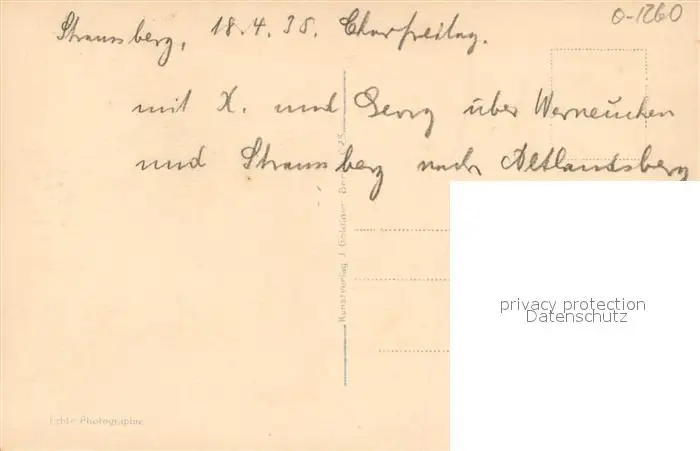 0-1260
Straussberg, 18.4.35. Charfreitag.
mit X. und Georg über Werneuchen
und Straussberg nach Altlandsberg
Kunstverlag J. Goldiner, Berlin
Echte Photographie
privacy protection
Datenschutz